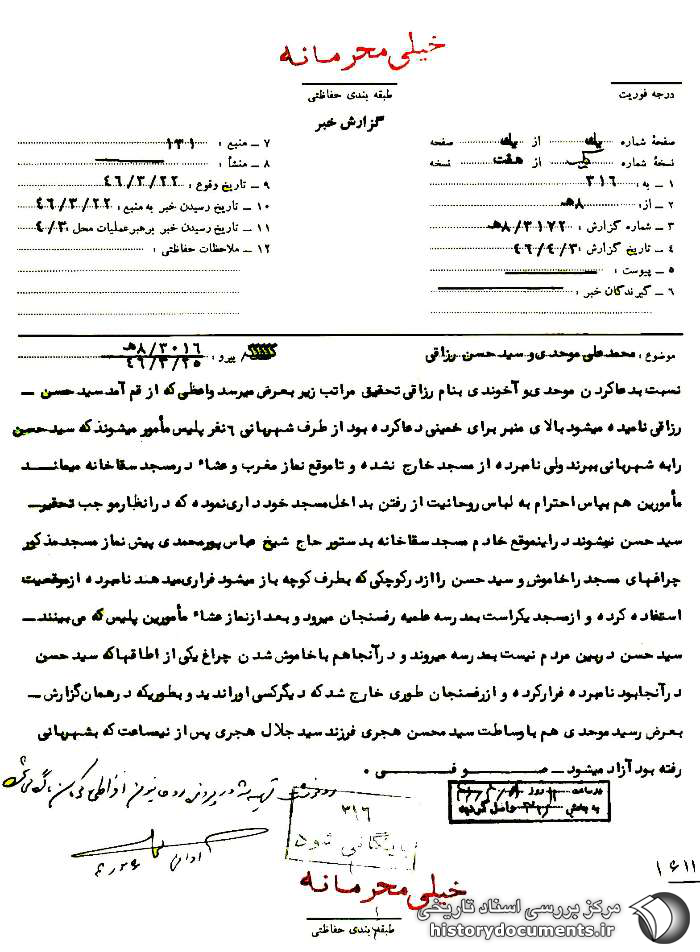 خیلی محرمانه
طبقه بندی حفاظتی
درجه فوریت
گزارش خبر
صفحهٔ شماره یک از یک صفحه
نسخهٔ شماره یک از هفت نسخه
۱ ـ به : ۳۱۶
۲ ـ از: ۸هـ
۳ ـ شماره گزارش : ۸/۳۱۷۲هـ
۴ ـ تاریخ گزارش : ۴۶/۴/۳
۵ ـ پیوست :
۶ ـ گیرندگان خبر :
۷ ـ منبع : ۱۳۱
۸ ـ منشأ :
۹ ـ تاریخ وقوع : ۴۶/۳/۲۲
۱۰ ـ تاریخ رسیدن خبر به منبع : ۴۶/۳/۲۲
۱۱ ـ تاریخ رسیدن خبر برهبرعملیات محل : ۴/۳
۱۲ ـ ملاحظات حفاظتی :
موضوع : محمدعلی موحدی و سید حسن رزاقی
/ پیرو : ۸/۳۰۱۶هـ
۴۶/۳/۲۵
نسبت بدعاکردن موحدی و آخوندی بنام رزاقی تحقیق مراتب زیر بعرض میرسد واعظی که از قم آمد سید حسن ـ
رزاقی نامیده میشود بالای منبر برای خمینی دعاکرده بود از طرف شهربانی ۶نفر پلیس مأمور میشوند که سید حسن
را به شهربانی ببرند ولی نامبرده از مسجد خارج نشده و تا موقع نماز مغرب و عشاء درمسجد سقاخانه میمانـد
مأمورین هم بپاس احترام به لباس روحانیت از رفتن بداخل مسجد خودداری نموده که درانظار موجب تحقیرـ
سید حسن نیشوند دراینموقع خادم مسجد سقاخانه بدستور حاج شیخ عباس پورمحمدی پیش نماز مسجد مذکور
چراغهای مسجد را خاموش و سید حسن را ازدرکوچکی که بطرف کوچه باز میشود فراری میدهند نامبرده ازموقعیت
استفاده کرده و ازمسجد یکراست بمدرسه علمیه رفسنجان میرود و بعد ازنماز عشاء مأمورین پلیس که می بینند ـ
سید حسن دربین مردم نیست بمدرسه میروند و درآنجاهم با خاموش شدن چراغ یکی از اطاقها که سید حسن
درآنجابود نامبرده فرارکرده و ازرفسنجان طوری خارج شد که دیگرکسی اورا ندید و بطوریکه درهمان گزارش ـ
بعرض رسید موحدی هم با وساطت سید محسن هجری فرزند سید جلال هجری پس از نیمساعت که بشهربانی
رفته بود آزاد میشود ـ صوفی .
۳۱۶
بایگانی شود
۱۶۱۱
خیلی محرمانه
طبقه بندی حفاظتی
مرکز بررسی اسناد تاریخی
historydocuments.ir